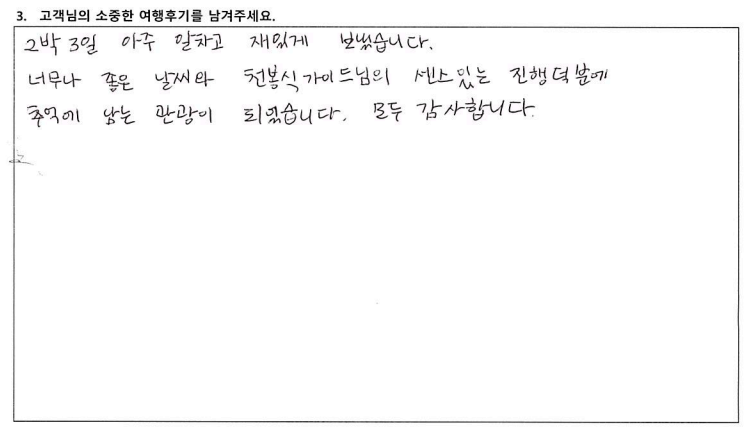 3. 고객님의 소중한 여행후기를 남겨주세요.
2박 3일 아주 알차고 재밌게 보냈습니다.
너무나 좋은 날씨와 천봉식가이드님의 센스있는 진행덕분에
추억에 남는 관광이 되었습니다. 모두 감사합니다.